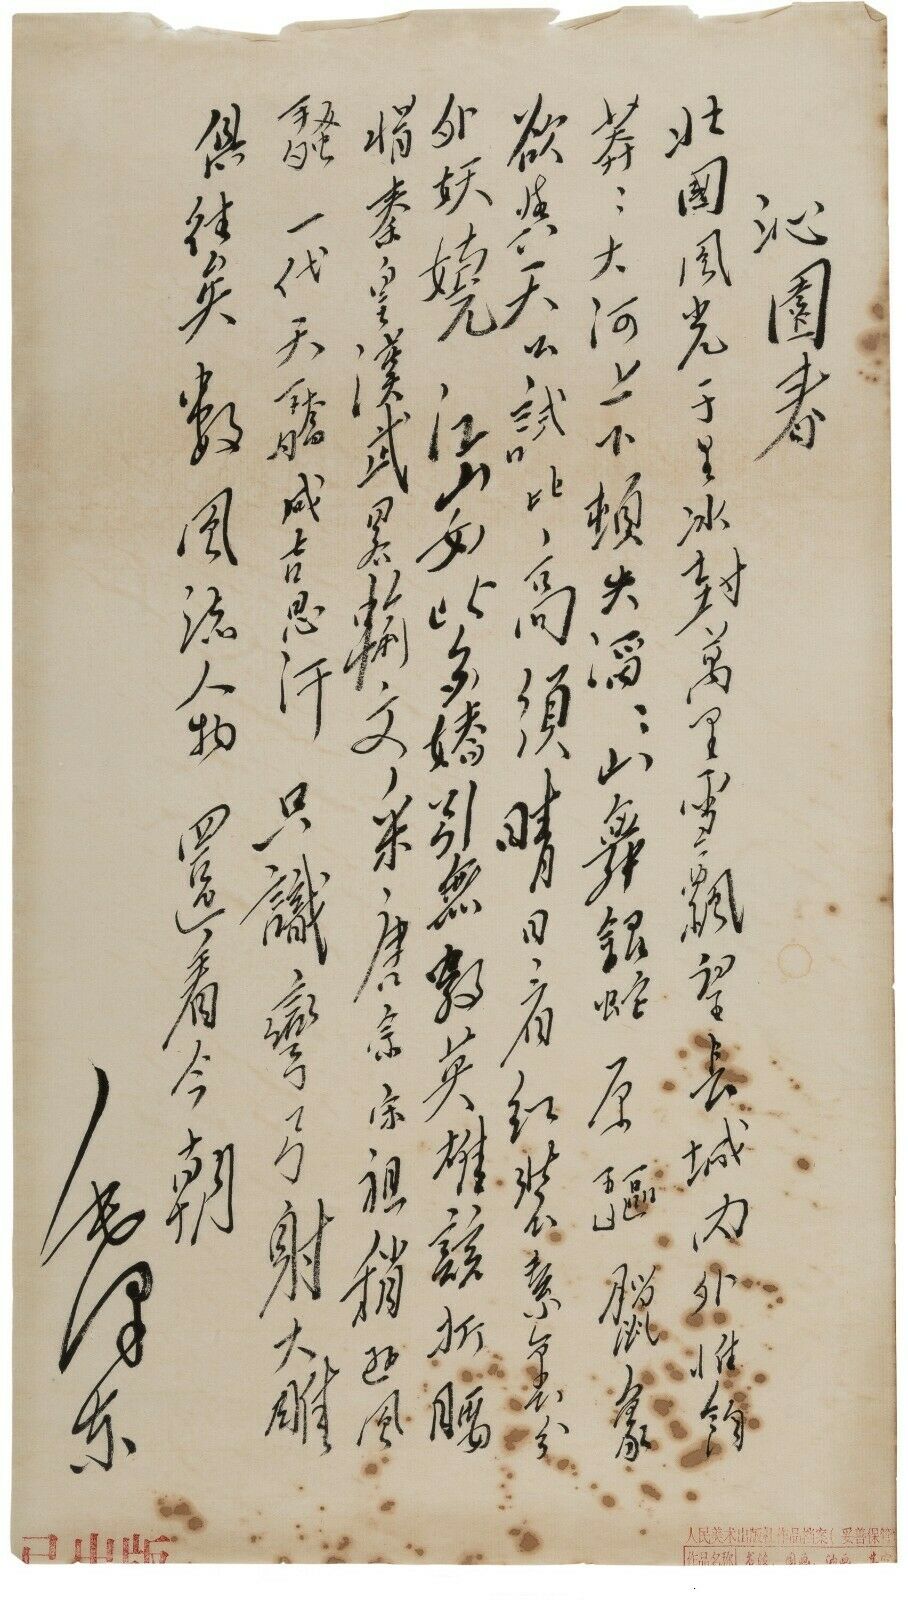 沁園春
北國風光千里冰封萬里雪飄望長城内外惟餘
莽〻大河上下頓失滔〻山舞銀蛇原驅臘象
欲與天公試比高須晴日看紅裝素裹分
外妖嬈江山如此多嬌引無數英雄競折腰
惜秦皇漢武畧輸文采唐宗宋祖稍遜風
騷一代天驕成吉思汗只識彎弓射大雕
俱往矣數風流人物還看今朝
毛澤東
已出版
人民美术出版社作品档案（妥善保管
作品名称 国画、油画